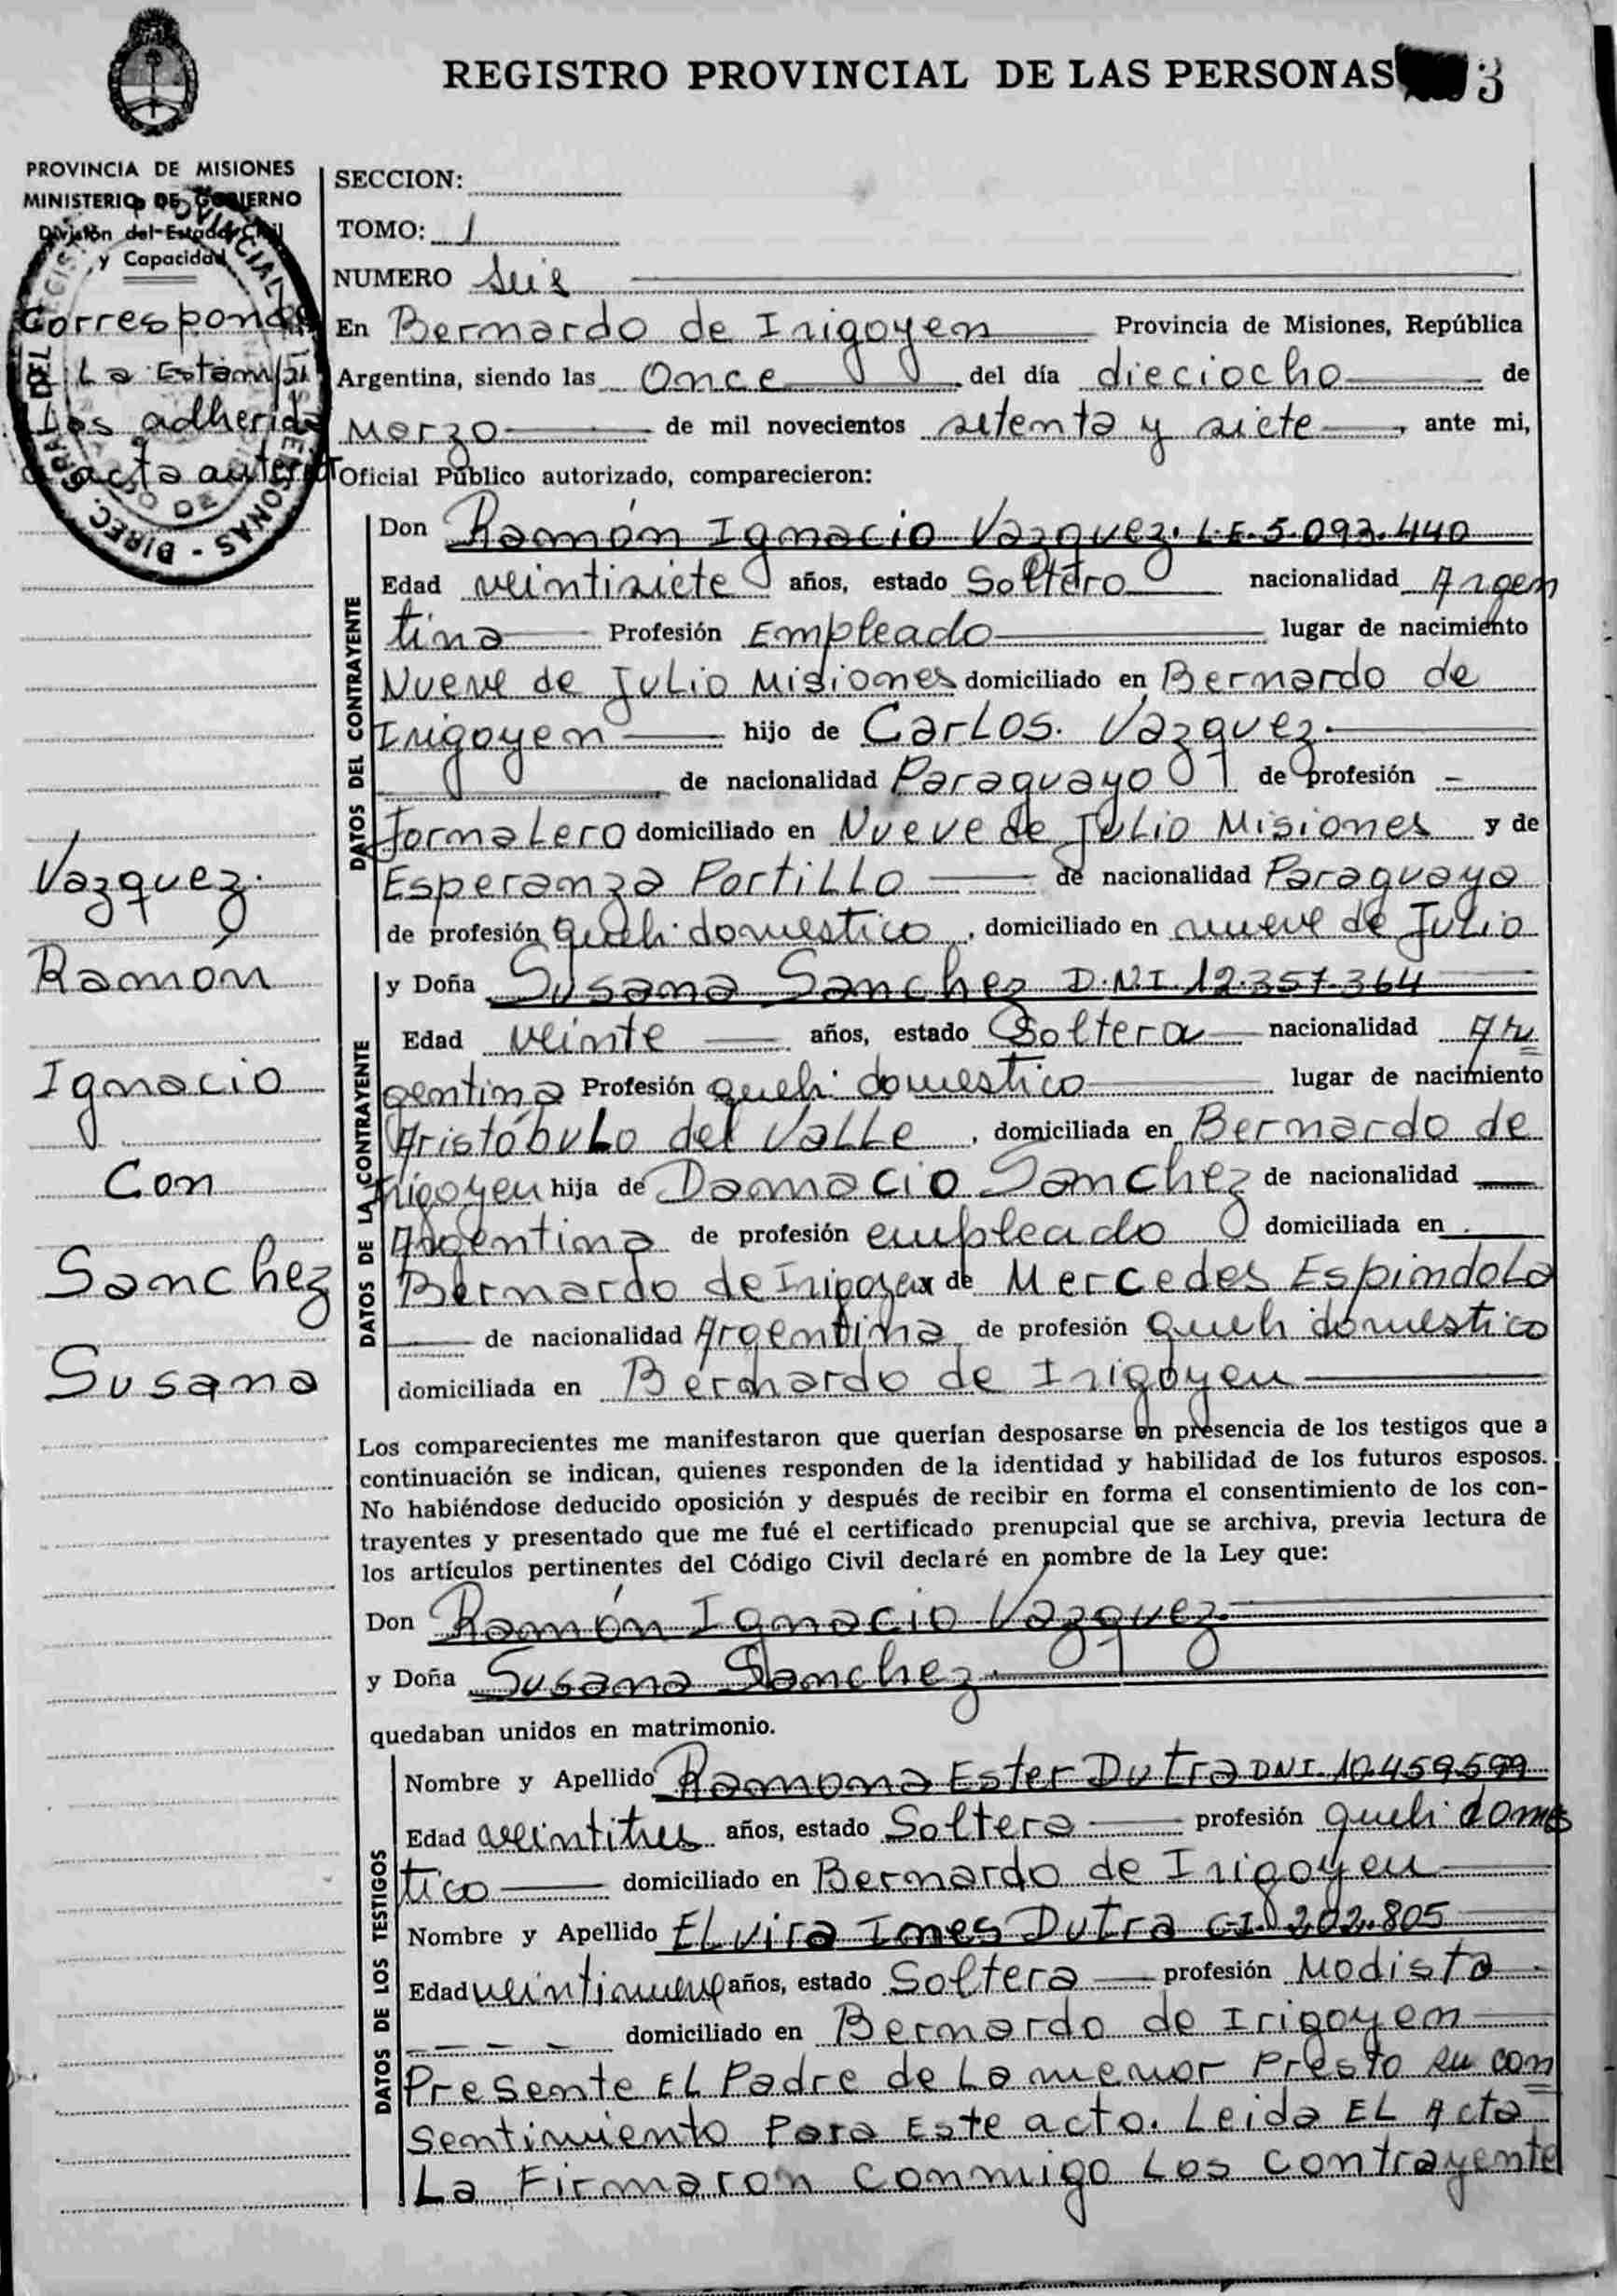 REGISTRO PROVINCIAL DE LAS PERSONAS 3
PROVINCIA DE MISIONES
MINISTERIO DE GOBIERNO
División del Estado Civil
y Capacidad
Corresponde
La Estampi
llas adherida
acta anterior
Vazquez.
Ramón
Ignacio
Con
Sanchez
Susana
SECCION:
TOMO: 1
NUMERO seis
En Bernardo de Irigoyen Provincia de Misiones, República
Argentina, siendo las Once del día dieciocho de
Marzo de mil novecientos setenta y siete, ante mi,
Oficial Público autorizado, comparecieron:
DATOS DEL CONTRAYENTE
Don Ramón Ignacio Vazquez. L.E. 5.092.440
Edad veintisiete años, estado Soltero nacionalidad Argen
tina Profesión Empleado lugar de nacimiento
Nueve de Julio Misiones domiciliado en Bernardo de
Irigoyen hijo de Carlos. Vazquez.
de nacionalidad Paraguayo de profesión -
Jornalero domiciliado en Nueve de Julio Misiones y de
Esperanza Portillo de nacionalidad Paraguaya
de profesión queh. domestico, domiciliado en nueve de Julio
DATOS DE LA CONTRAYENTE
y Doña Susana Sanchez D.N.I. 12.357.364
Edad veinte años, estado Soltera nacionalidad Ar
gentina Profesión queh. domestico lugar de nacimiento
Aristóbulo del Valle, domiciliada en Bernardo de
Irigoyen hija de Damacio Sanchez de nacionalidad
Argentina de profesión empleado domiciliada en
Bernardo de Irigoyen y de Mercedes Espindola
de nacionalidad Argentina de profesión queh domestico
domiciliada en Bernardo de Irigoyen
Los comparecientes me manifestaron que querían desposarse en presencia de los testigos que a
continuación se indican, quienes responden de la identidad y habilidad de los futuros esposos.
No habiéndose deducido oposición y después de recibir en forma el consentimiento de los con-
trayentes y presentado que me fué el certificado prenupcial que se archiva, previa lectura de
los artículos pertinentes del Código Civil declaré en nombre de la Ley que:
Don Ramón Ignacio Vazquez
y Doña Susana Sanchez
quedaban unidos en matrimonio.
DATOS DE LOS TESTIGOS
Nombre y Apellido Ramona Ester Dutra DNI. 10.459.599
Edad veintitres años, estado Soltera profesión queh. domes
tico domiciliado en Bernardo de Irigoyen
Nombre y Apellido Elvira Ines Dutra C.I. 202.805
Edad veintinueve años, estado Soltera profesión Modista
domiciliado en Bernardo de Irigoyen
Presente El Padre de La menor Presto su con
sentimiento Para Este acto. Leida El Acta
La Firmaron Conmigo Los Contrayente